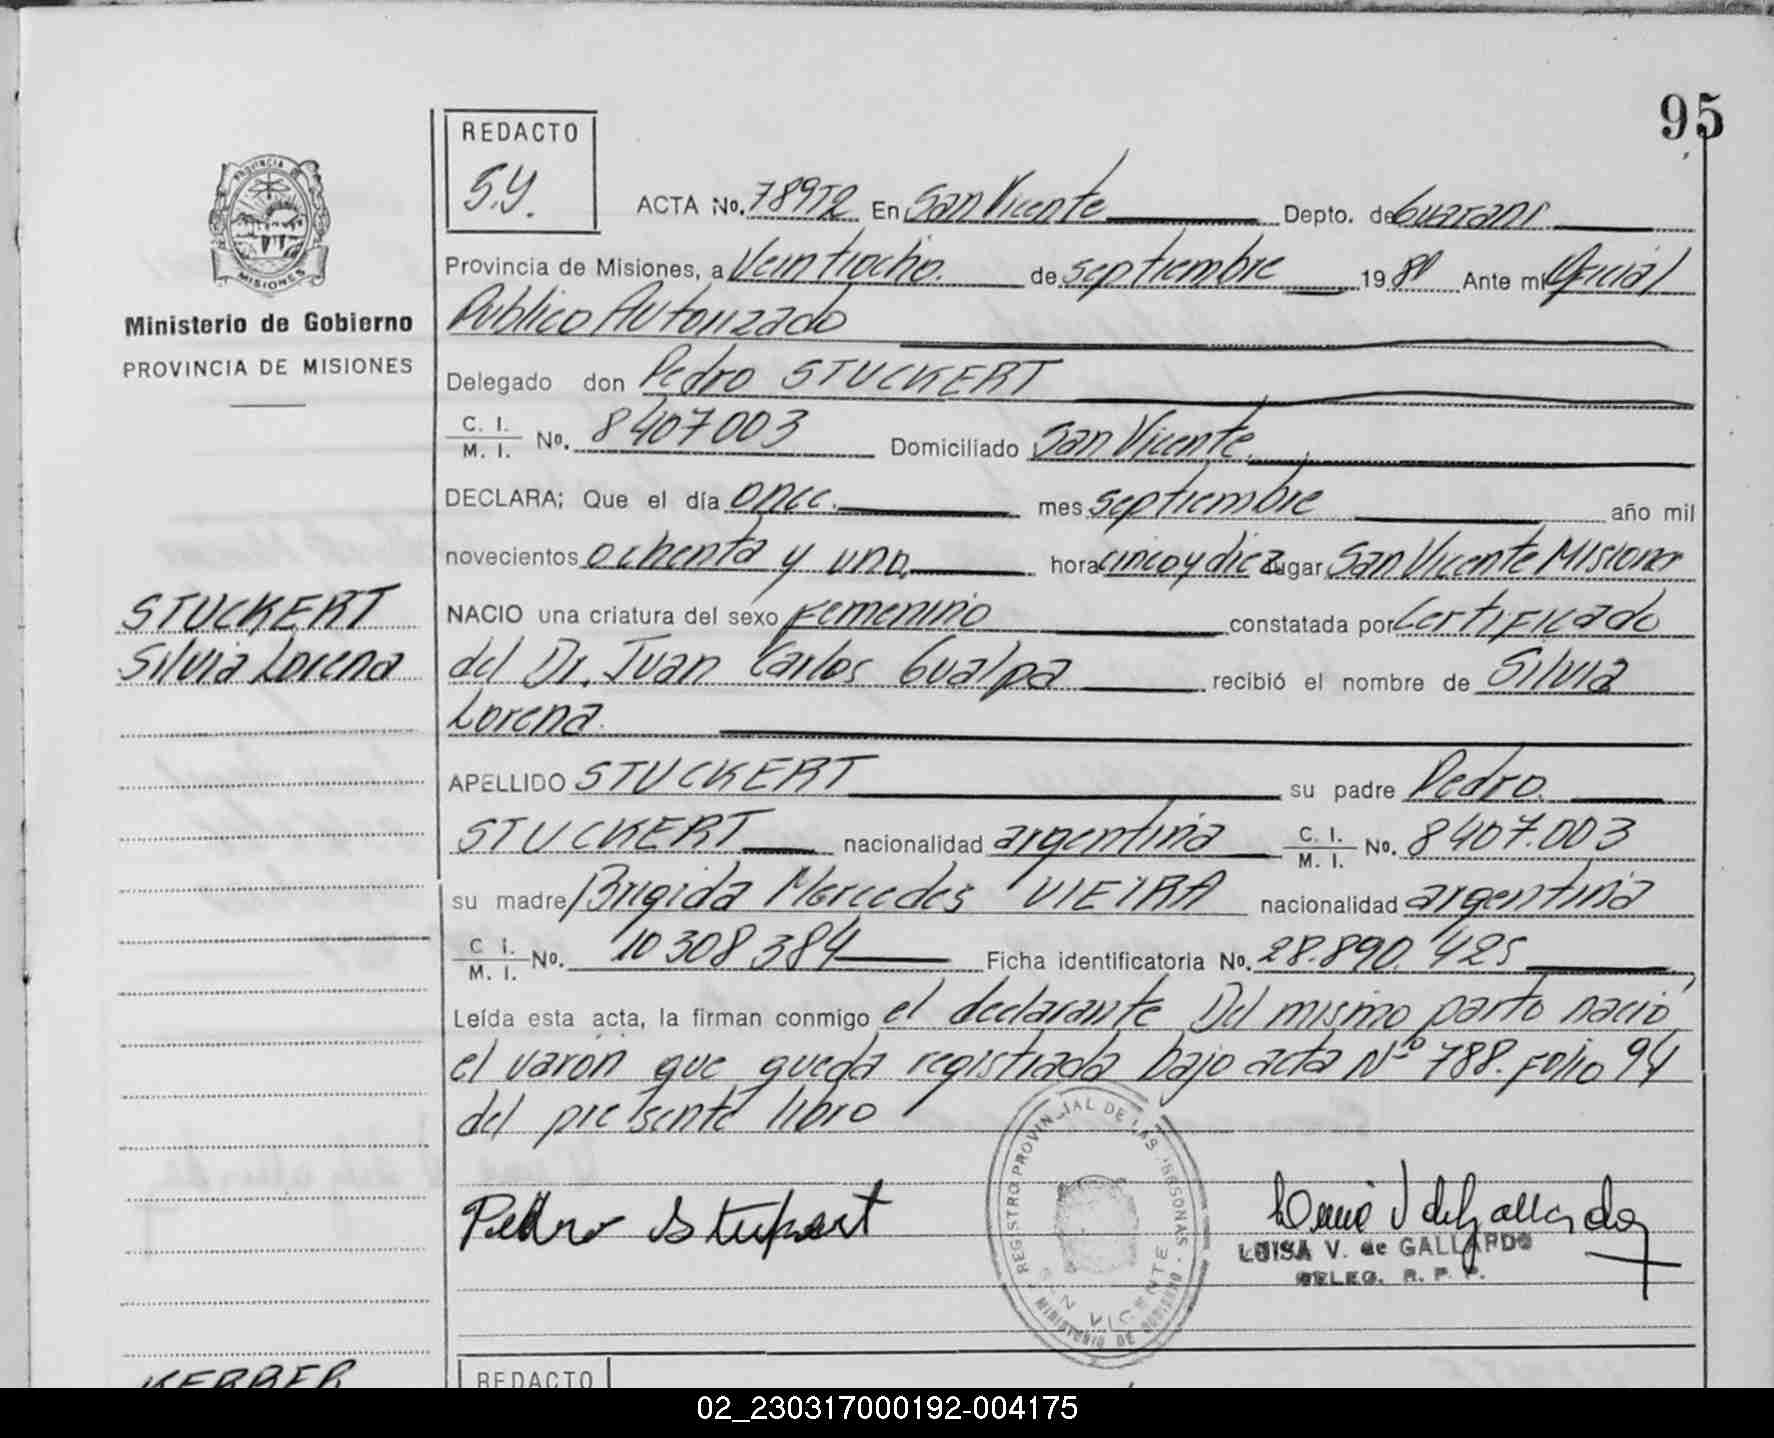 95
REDACTO
S.Y.
PROVINCIA DE MISIONES
Ministerio de Gobierno
PROVINCIA DE MISIONES
ACTA No. 789T2 En San Vicente Depto. de Guarani
Provincia de Misiones, a Veintiocho. de septiembre 198 Ante mi Oficial
Publico Autorizado
Delegado don Pedro STUCKERT
C. I. / M. I. No. 8407003 Domiciliado San Vicente
DECLARA; Que el día once. mes septiembre año mil
novecientos ochenta y uno. hora cinco y diez lugar San Vicente Misiones
STUCKERT
Silvia Lorena
NACIO una criatura del sexo Femenino constatada por Certificado
del Dr. Juan Carlos Gualpa recibió el nombre de Silvia
Lorena.
APELLIDO STUCKERT su padre Pedro.
STUCKERT nacionalidad argentina C. I. / M. I. No. 8407.003
su madre Brigida Mercedes VIEIRA nacionalidad argentina
C. I. / M. I. No. 10308384 Ficha identificatoria No. 28.890.425
Leída esta acta, la firman conmigo el declarante Del mismo parto nacio
el varón que queda registrada bajo acta Nº 788. Folio 94
del presente libro
Pedro Stukert
REGISTRO PROVINCIAL DE LAS PERSONAS
SAN VICENTE
MINISTERIO DE GOBIERNO
LUISA V. de GALLARDO
DELEG. R. P. P.
KERBER
REDACTO
02_230317000192-004175